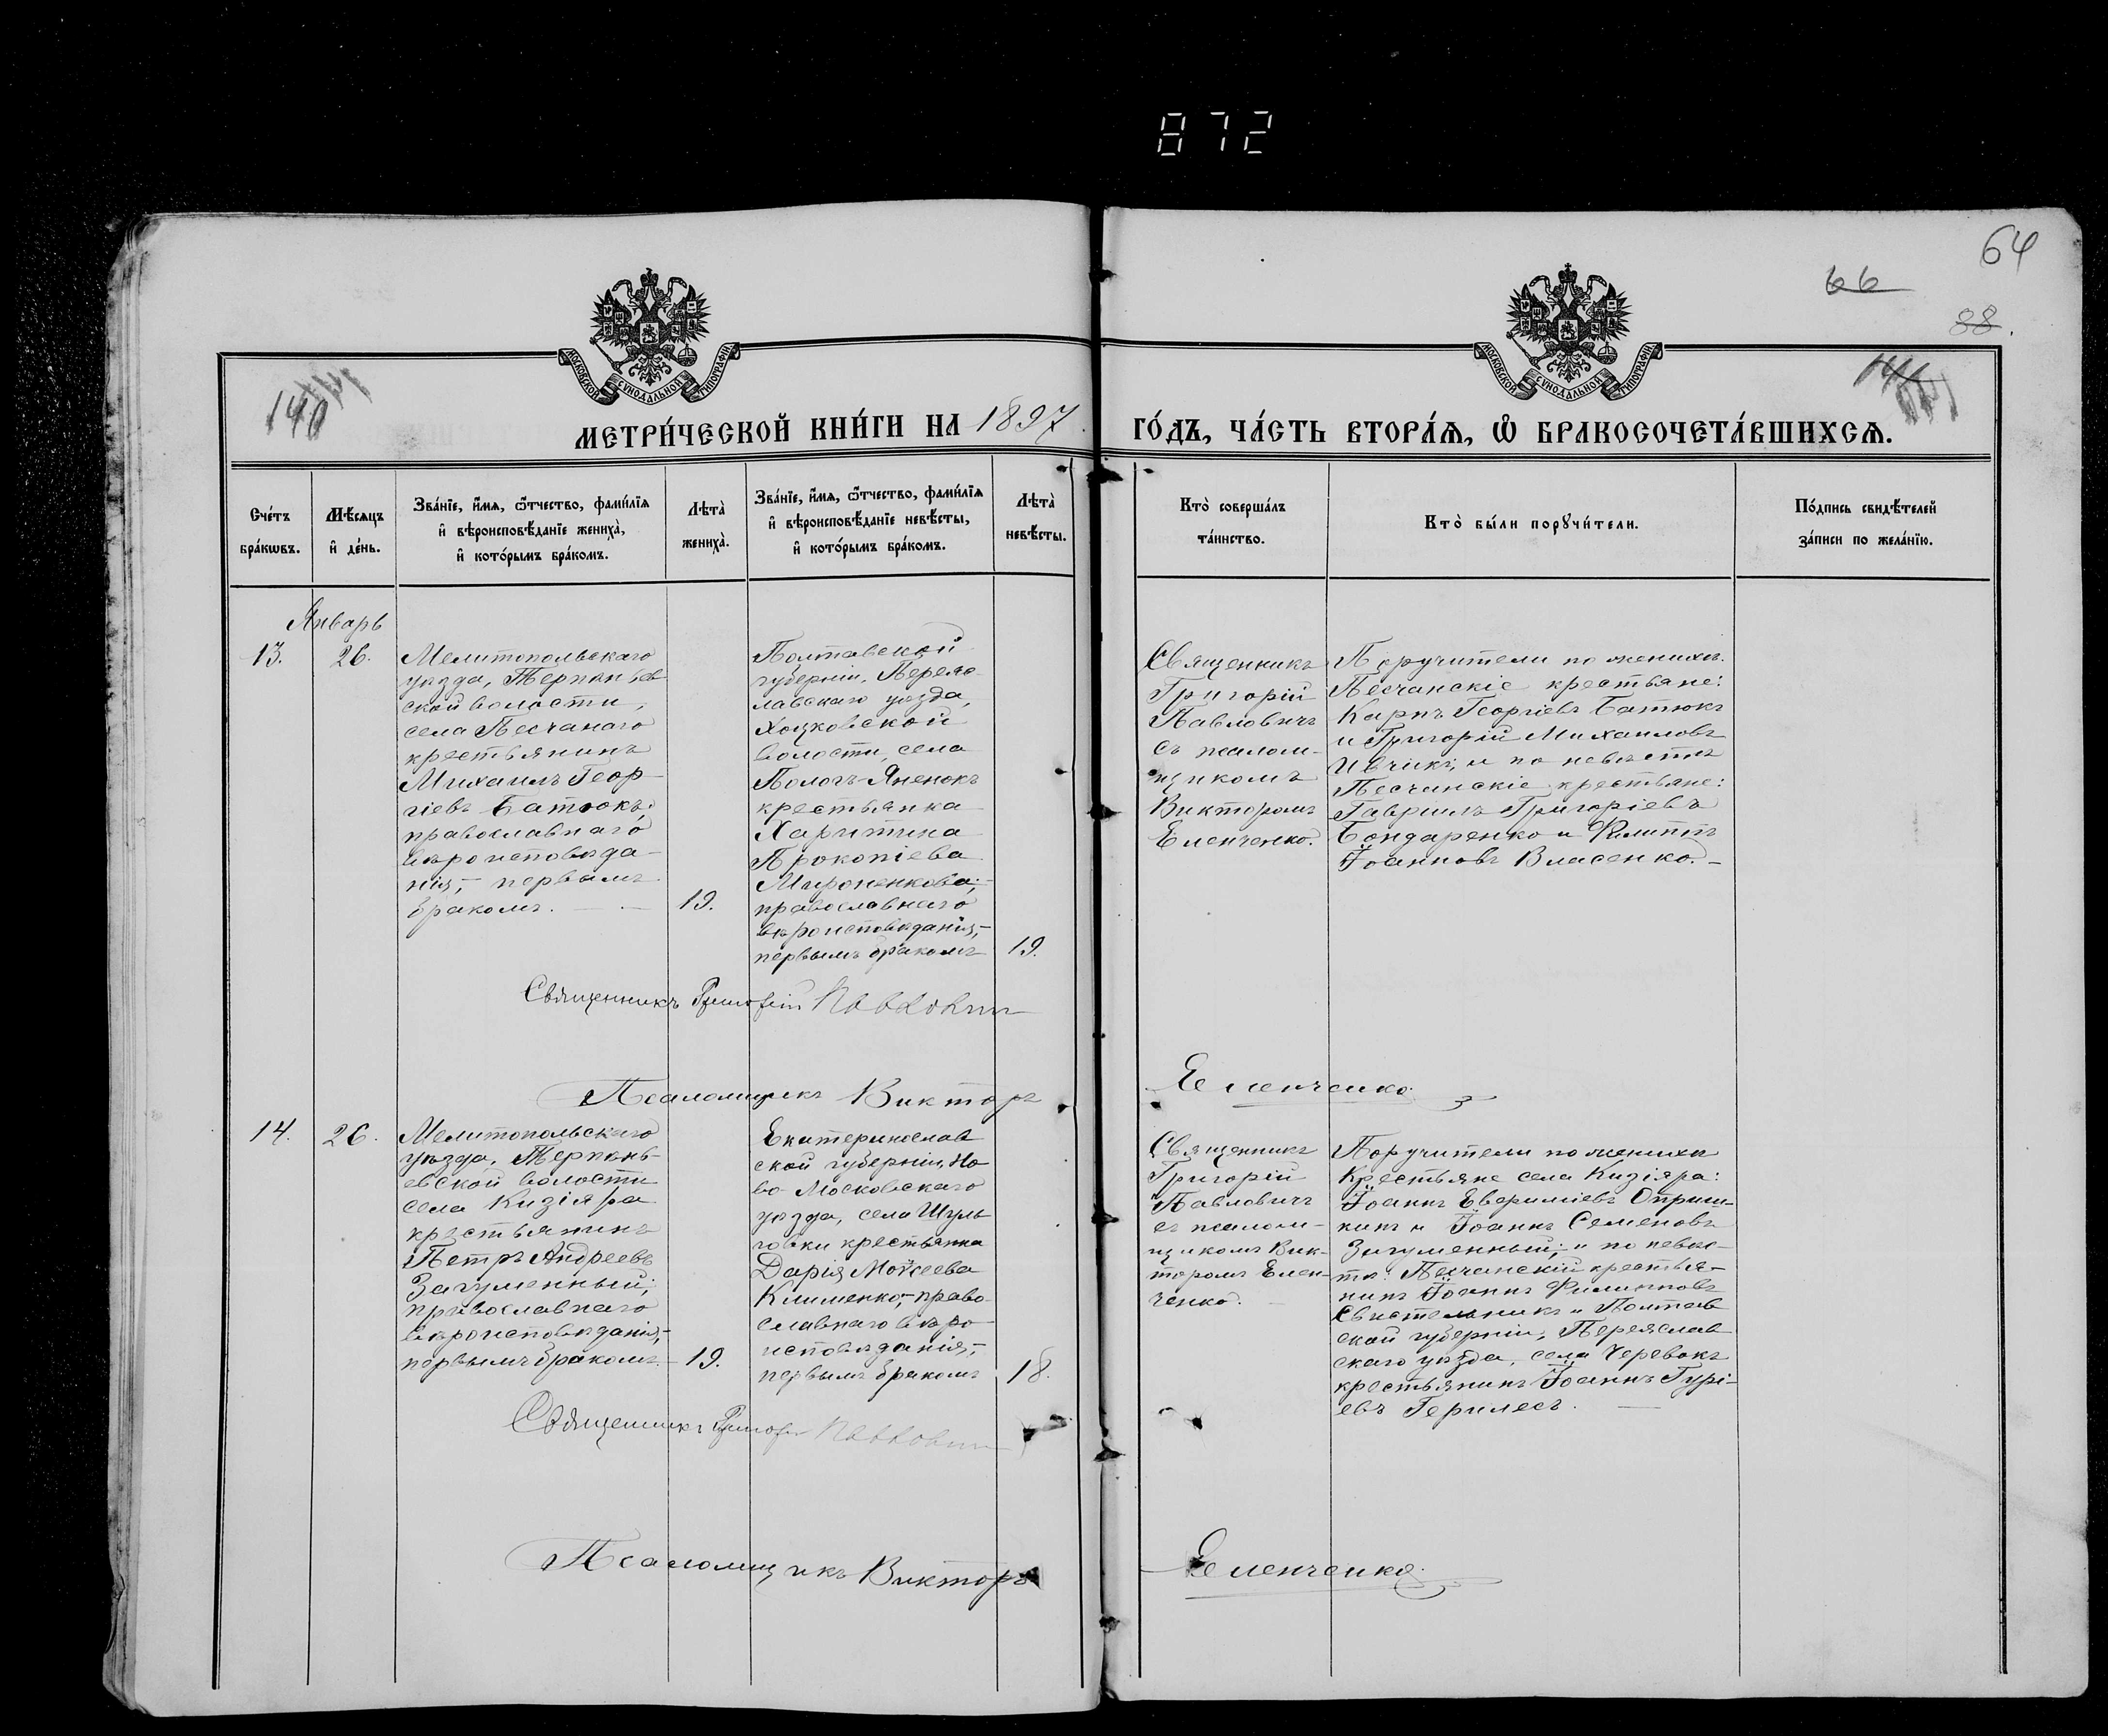 872
64
66
88.
140
МОСКОВСКОЙ СѴНОДАЛЬНОЙ ТИПОГРАФІИ
МОСКОВСКОЙ СѴНОДАЛЬНОЙ ТИПОГРАФІИ
МЕТРИ́ЧЕСКОЙ КНИ́ГИ НА 1897.
ГО́ДЪ, ЧА́СТЬ ВТОРА́Ѧ, Ѽ БРАКОСОЧЕТА́ВШИХСѦ.
Сче́тъ
бра́кѡвъ.
Мѣ́сѧцъ
и҆ де́нь.
Зва́нїе, и҆́мѧ, ѻ҆́тчество, фамилїѧ
и҆ вѣроисповѣ́данїе жениха̀,
и҆ кото́рымъ бра́комъ.
Лѣта̀
жениха̀.
Зва́нїе, и҆́мѧ, ѻ҆́тчество, фамилїѧ
и҆ вѣроисповѣ́данїе невѣ́сты,
и҆ кото́рымъ бра́комъ.
Лѣта̀
невѣ́сты.
Кто̀ соверша́лъ
та́инство.
Кто̀ бы́ли порꙋчи́тели.
По́дпись свидѣ́телей
за́писи по жела́нїю.
Январь
13.
26.
Мелитопольскаго
уѣзда, Терпѣньев-
ской волости,
села Песчанаго
крестьянинъ
Михаилъ Геор-
гіевъ Батюкъ;
православнаго
вѣроисповѣда-
нія,- первымъ
бракомъ. —
19.
Полтавской
губерніи, Переяс-
лавскаго уѣзда,
Хоцковской
волости, села
Пологъ-Яненокъ
крестьянка
Харитина
Прокопіева
Мироненкова;-
православнаго
вѣроисповѣданія,-
первымъ бракомъ
19.
Священникъ
Григорій
Павловичъ
съ псалом-
щикомъ
Викторомъ
Еленченко.
Поручители по женихѣ:
Песчанскіе крестьяне:
Карпъ Георгіевъ Батюкъ
и Григорій Михаиловъ
Ивчикъ; и по невѣстѣ
Песчанскіе крестьяне:
Гавріилъ Григоріевъ
Бондаренко и Филиппъ
Іоанновъ Власенко.-
Священникъ Григорій Павловичъ
Псаломщикъ Викторъ Еленченко
14.
26.
Мелитопольскаго
уѣзда, Терпѣнь-
евской волости
села Кизіяра
крестьянинъ
Петръ Андреевъ
Загуменный;
православнаго
вѣроисповѣданія,-
первымъ бракомъ.-
19.
Екатеринослав
ской губерніи, Но
во Московскаго
уѣзда, села Шуль
говки крестьянка
Дарія Моисеева
Клименко;- право-
славнаго вѣро-
исповѣданія,-
первымъ бракомъ
18.
Священникъ
Григорій
Павловичъ
съ псалом-
щикомъ Вик-
торомъ Елен-
ченко.
Поручители по женихѣ
Крестьяне села Кизіяра:
Іоаннъ Евфиміевъ Опрыш-
кинъ и Іоаннъ Семеновъ
Загуменный; и по невѣс-
тѣ: Песчанскій крестья-
нинъ Іоаннъ Филипповъ
Свистельникъ и Полтав
ской губерніи, Переяслав
скаго уѣзда, села Черевокъ
крестьянинъ Іоаннъ Гурі-
евъ Герилесъ. —
Священникъ Григорій Павловичъ
Псаломщикъ Викторъ Еленченко.